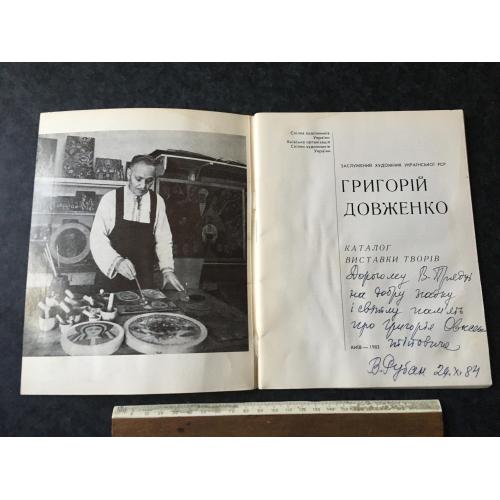 Спілка художників
України
Київська організація
Спілки художників
України
ЗАСЛУЖЕНИЙ ХУДОЖНИК УКРАЇНСЬКОЇ РСР
ГРИГОРІЙ
ДОВЖЕНКО
КАТАЛОГ
ВИСТАВКИ ТВОРІВ
Дорогому В.
на добру згадку
і світлу пам'ять
про Григорія Овксен
тійовича
КИЇВ — 1983
В. Рубан 29.XI.84